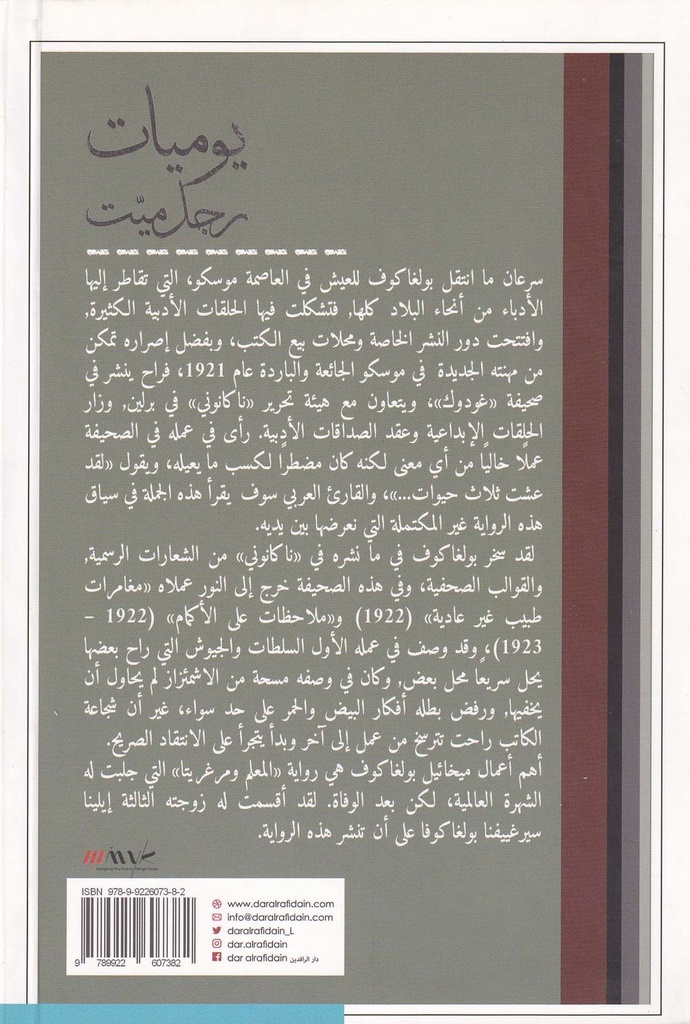 يوميات
رجل ميّت
سرعان ما انتقل بولغاكوف للعيش في العاصمة موسكو، التي تقاطر إليها
الأدباء من أنحاء البلاد كلها, فتشكلت فيها الحلقات الأدبية الكثيرة,
وافتتحت دور النشر الخاصة ومحلات بيع الكتب، وبفضل إصراره تمكن
من مهنته الجديدة في موسكو الجائعة والباردة عام 1921، فراح ينشر في
صحيفة «غودوك»، ويتعاون مع هيئة تحرير «ناكانوني» في برلين, وزار
الحلقات الإبداعية وعقد الصداقات الأدبية. رأى في عمله في الصحيفة
عملًا خاليًا من أي معنى لكنه كان مضطرًا لكسب ما يعيله، ويقول «لقد
عشت ثلاث حيوات...»، والقارئ العربي سوف يقرأ هذه الجملة في سياق
هذه الرواية غير المكتملة التي نعرضها بين يديه.
لقد سخر بولغاكوف في ما نشره في «ناكانوني» من الشعارات الرسمية,
والقوالب الصحفية، وفي هذه الصحيفة خرج إلى النور عملاه «مغامرات
طبيب غير عادية» (1922) و«ملاحظات على الأكمام» (1922 –
1923)، وقد وصف في عمله الأول السلطات والجيوش التي راح بعضها
يحل سريعًا محل بعض, وكان في وصفه مسحة من الاشمئزاز لم يحاول أن
يخفيها, ورفض بطله أفكار البيض والحمر على حد سواء، غير أن شجاعة
الكاتب راحت تترسخ من عمل إلى آخر وبدأ يتجرأ على الانتقاد الصريح.
أهم أعمال ميخائيل بولغاكوف هي رواية «المعلم ومرغريتا» التي جلبت له
الشهرة العالمية، لكن بعد الوفاة. لقد أقسمت له زوجته الثالثة إيلينا
سيرغييفنا بولغاكوفا على أن تنشر هذه الرواية.
ISBN 978-9-9226073-8-2
9 789922 607382
www.daralrafidain.com
info@daralrafidain.com
daralrafidain_L
dar.alrafidain
dar alrafidain دار الرافدين